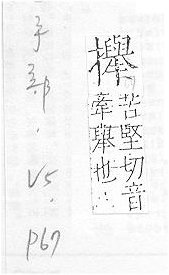 攑
苦堅切音
牽舉也
手部.V5.p67